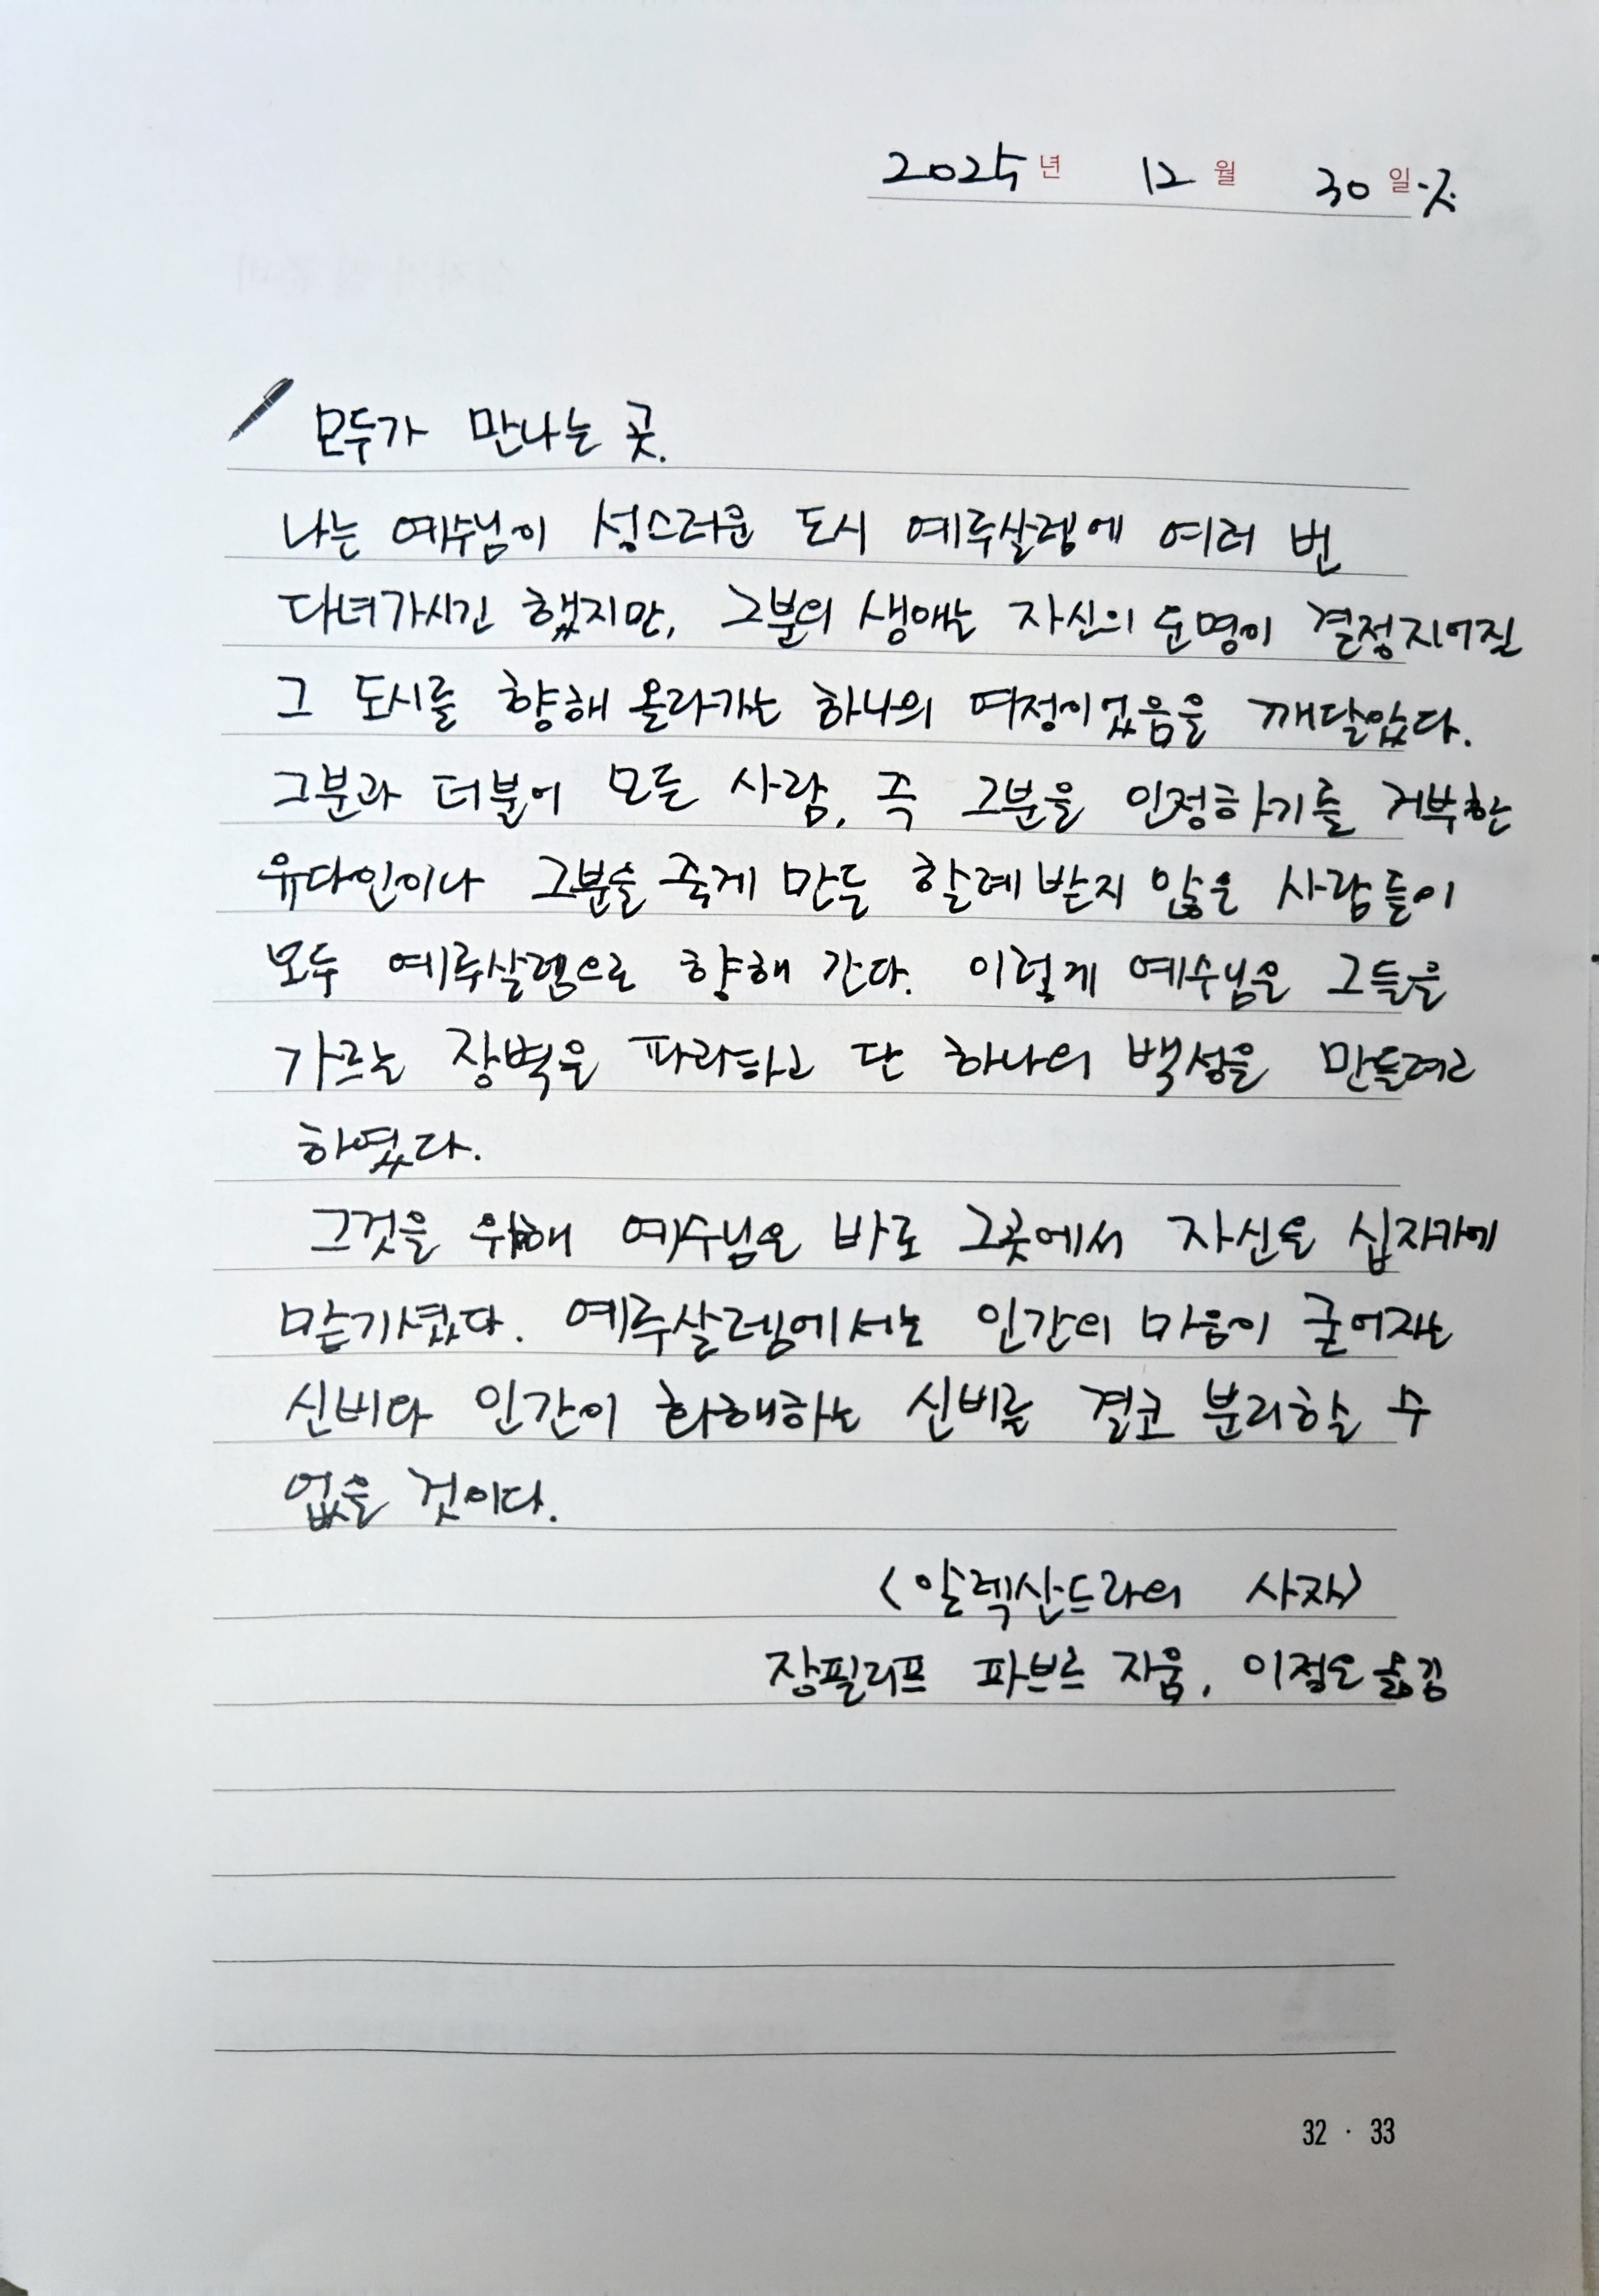 2025년 12월 30일.
모두가 만나는 곳.
나는 예수님이 성스러운 도시 예루살렘에 여러 번
다녀가시긴 했지만, 그분의 생애는 자신의 운명이 결정지어질
그 도시를 향해 올라가는 하나의 여정이었음을 깨달았다.
그분과 더불어 모든 사람, 즉 그분을 인정하기를 거부한
유다인이나 그분을 죽게 만든 할례 받지 않은 사람들이
모두 예루살렘으로 향해 간다. 이렇게 예수님은 그들을
가르는 장벽을 파괴하고 단 하나의 백성을 만들려고
하였다.
그것을 위해 예수님은 바로 그곳에서 자신을 십자가에
맡기셨다. 예루살렘에서는 인간의 마음이 굳어지는
신비와 인간이 화해하는 신비를 결코 분리할 수
없을 것이다.
<알렉산드리아의 사자>
장필리프 파브르 지음, 옮김
32 · 33